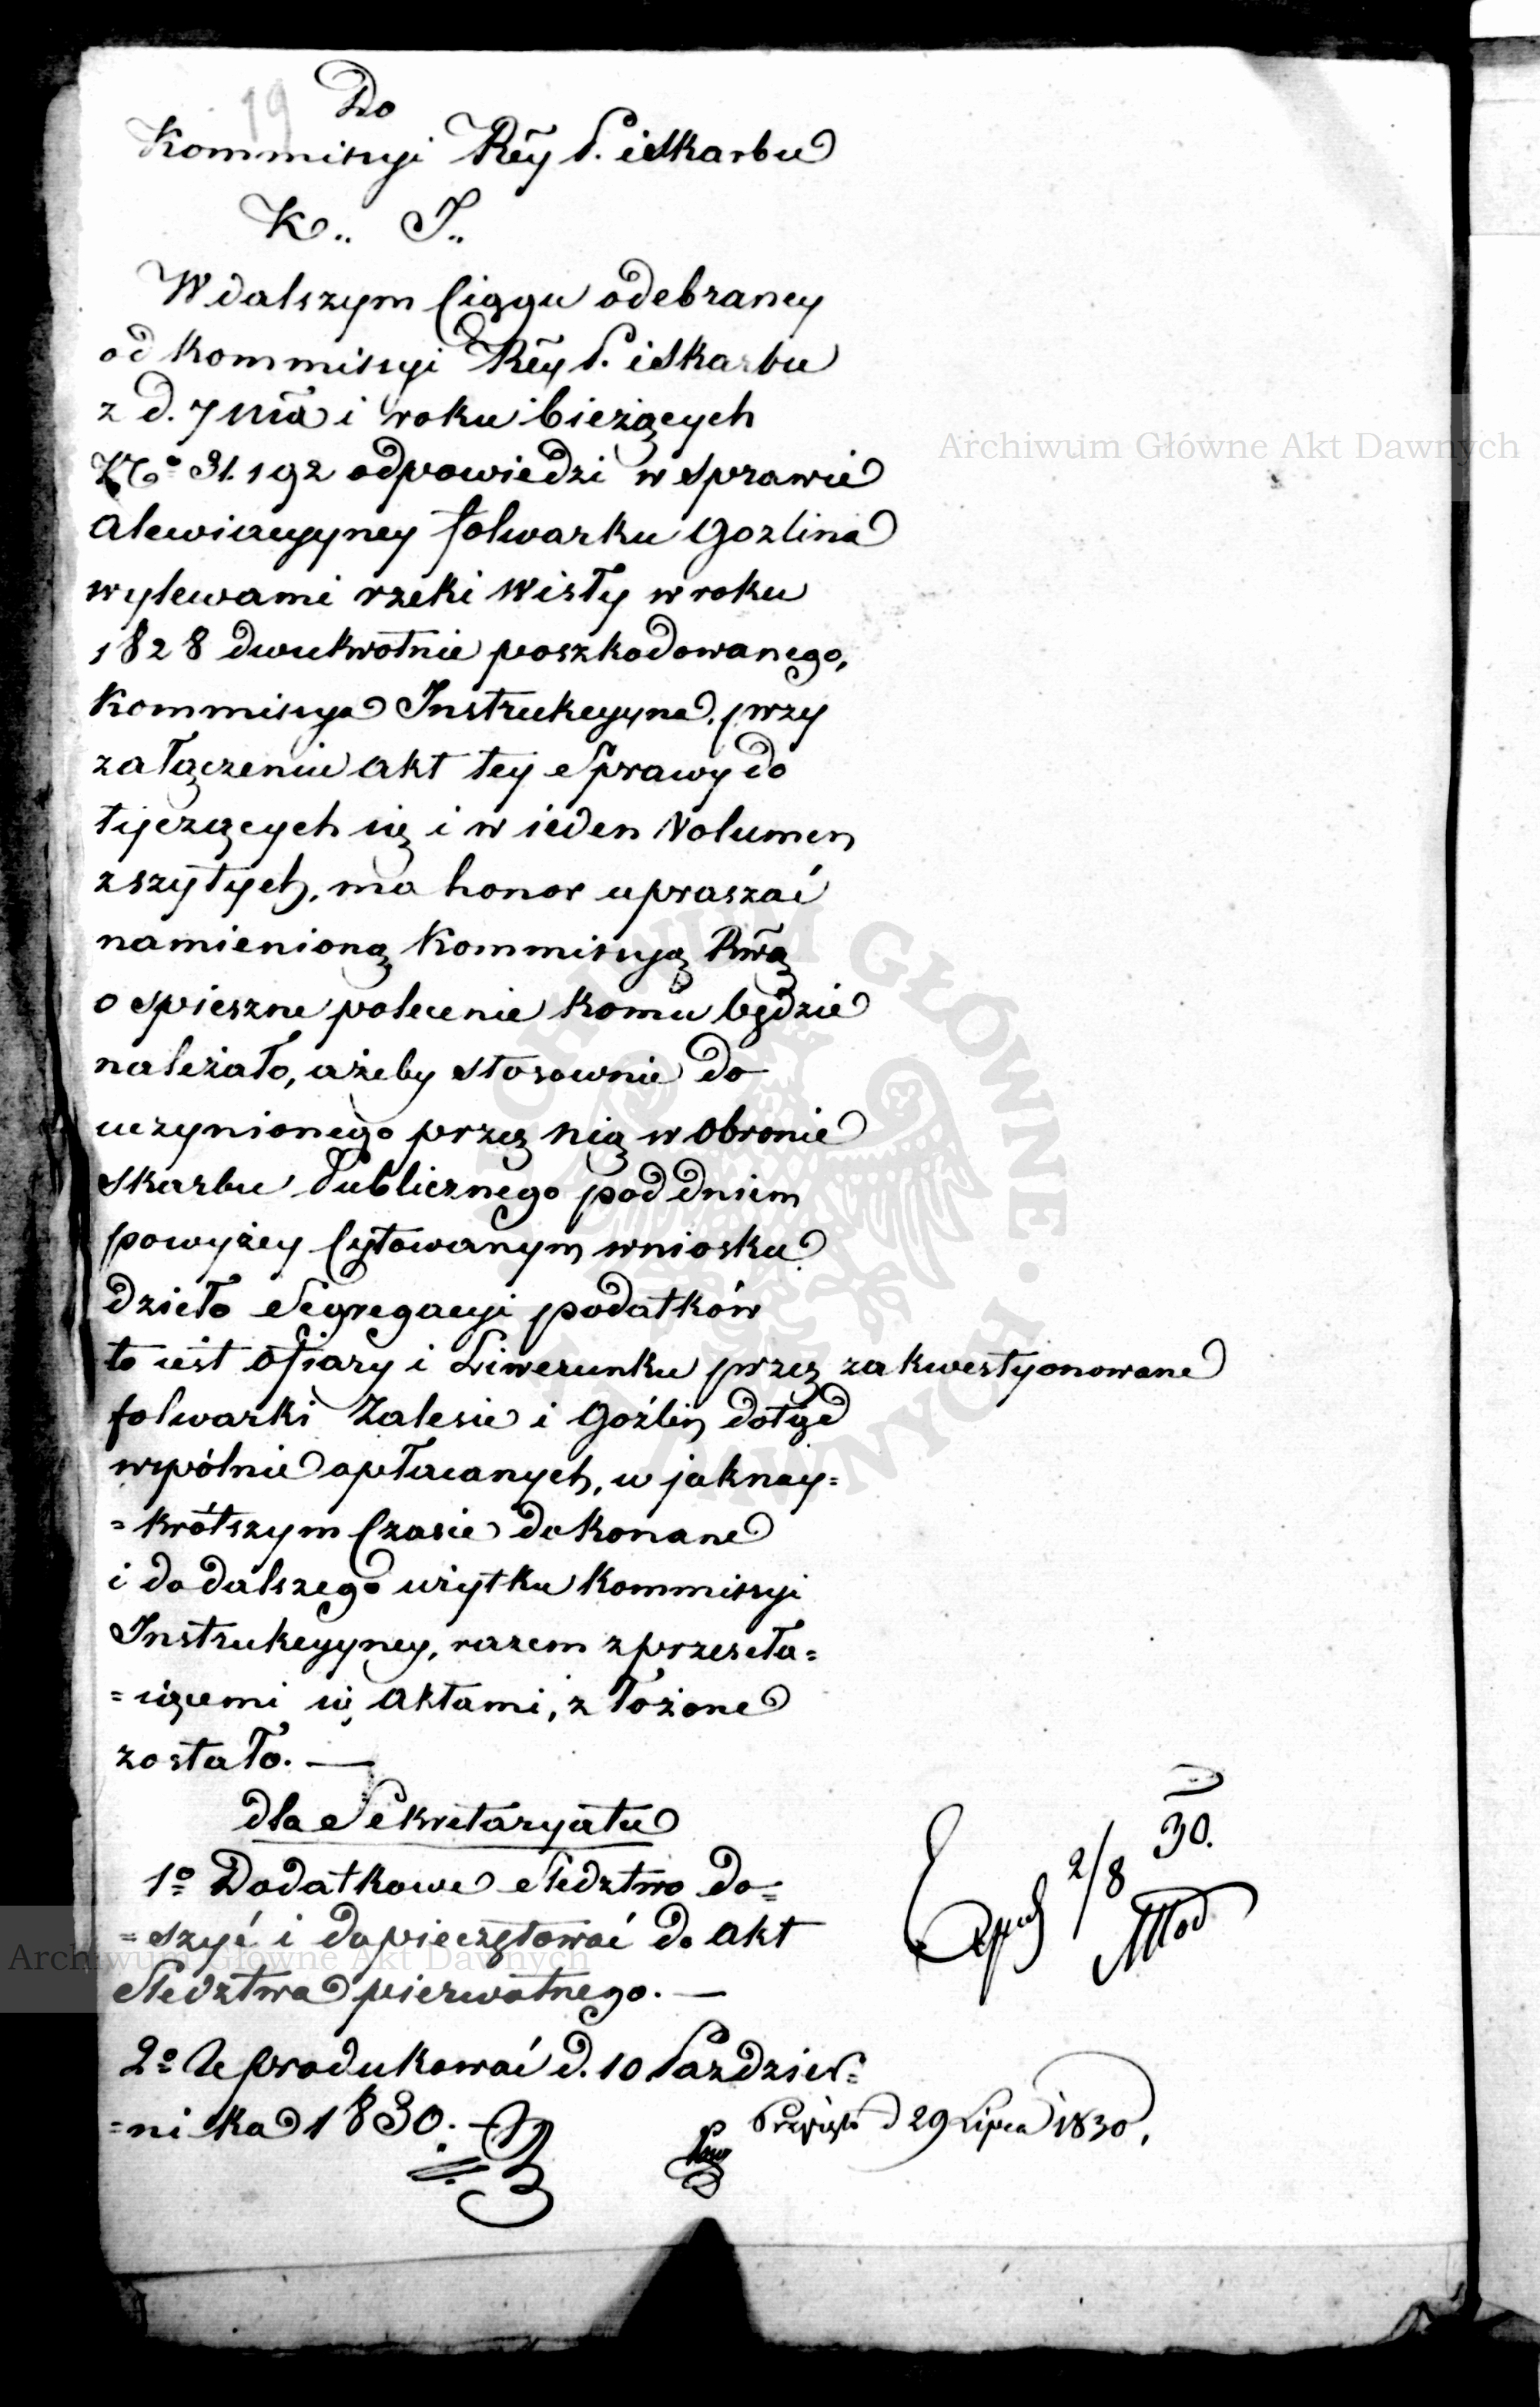 19
Do
Kommissyi Rẽy P. i Skarbu
K.. J..
W dalszym Ciągu odebraney
od Kommissyi Rẽy P. i Skarbu
z d. 7 mca i roku bieżących
No 31.192 odpowiedzi w Sprawie
alewiacyyney folwarku Gozlina
wylewami rzeki Wisły w roku
1828 dwukrotnie poszkodowanego,
Kommissya Instrukcyyna, przy
załączeniu akt tey Sprawy do
tyczących się i w ieden Volumen
zszytych, ma honor upraszać
namienioną Kommissyą Rwą
o spieszne polecenie komu będzie
należało, ażeby stosownie do
uczynionego przez nią w obronie
Skarbu Publicznego pod dniem
powyżey Cytowanym wniosku
dzieło Segregacyi podatków
to iest Ofiary i Liwerunku przez zakwestyonowane
folwarki Zalesie i Goźlin dotąd
wspólnie opłacanych, w jaknay=
=krótszym Czasie dokonane
i do dalszego użytku Kommissyi
Instrukcyyney, razem z przeseła=
=iącemi się aktami, złożone
zostało. —
dla Sekretaryatu
1o Dodatkowe Sledztwo do=
=szyć i dopieczętować do akt
Sledztwa pierwotnego. —
2o Reprodukować d. 10 Paździer=
=nika 1830.
Exped 2/8 30.
Przyięto d 29 Lipca 1830.
Archiwum Główne Akt Dawnych
Archiwum Główne Akt Dawnych
ARCHIWUM GŁÓWNE AKT DAWNYCH